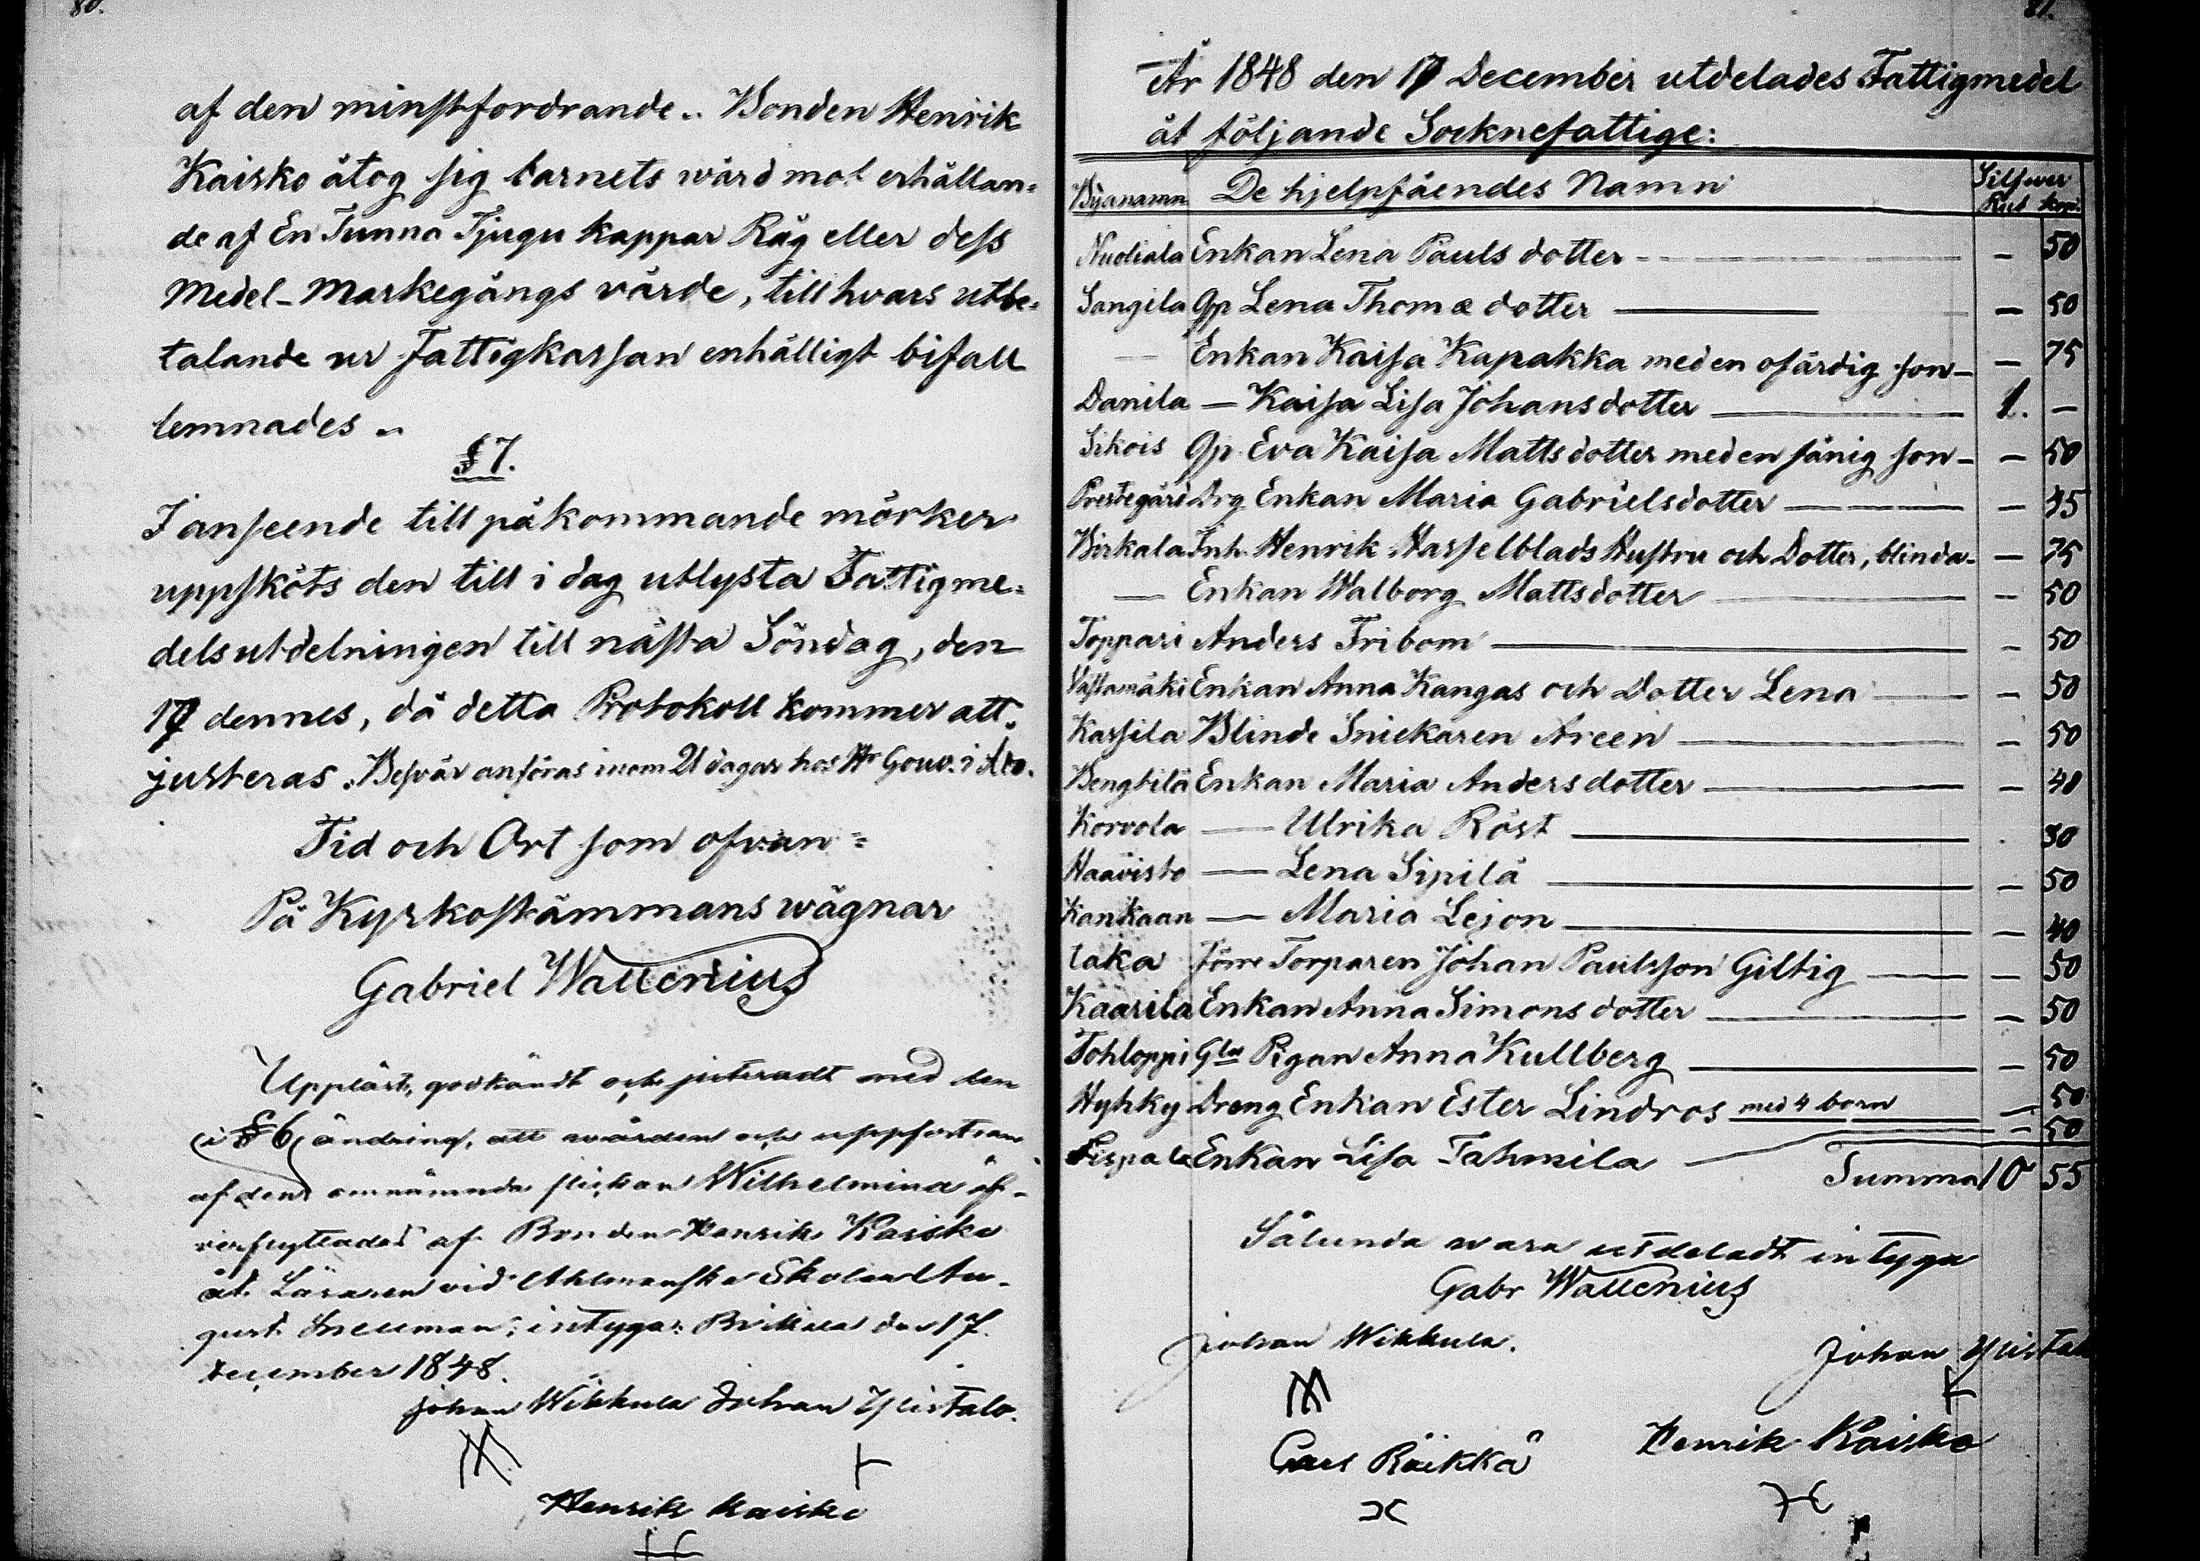 80.
af den minstfordrande. Bonden Henrik
Kaisko åtog sig barnets wård mot erhållan=
de af En Tunna Tjugu kappar Råg eller dess
Medel-Markegångs värde, till hvars utbe=
talande ur Fattigkassan enhälligt bifall
lemnades.
§ 7.
I anseende till påkommande mörker
uppsköts den till i dag utlysta Fattigme=
delsutdelningen till nästa Söndag, den
17 dennes, då detta Protokoll kommer att
justeras. Besvär anföras inom 21 dagar hos Hr Gouv. i
Tid och Ort som ofvan =
På Kyrkostämmans wägnar
Gabriel Wallenius
Uppläst, godkändt och justeradt med den
i § 6 ändring, att wården och uppfostran
af den omnämnda flickan Wilhelmina öf-
verflyttades af Bonden Henrik Kaisko
åt Läraren vid Ahlmanska Skolan Au-
gust Snellman; intyga: Birkkala den 17
December 1848.
Johan Wikkula Johan Ylistalo.
Henrik Kaisko
81.
År 1848 den 17 December utdelades Fattigmedel
åt följande Socknefattige:
Byanamn De hjelpfåendes Namn Silfwer Rub kop.
Nuoliala Enkan Lena Pauls dotter - — 50
Sangila Gp Lena Thomæ dotter — — 50
— Enkan Kaisa Kapakka med en ofärdig son — — 75
Danila — Kaisa Lisa Johans dotter — 1. —
Sikois Gp. Eva Kaisa Matts dotter med en fånig son — — 50
Prestegård Drg Enkan Maria Gabrielsdotter — — 45
Birkala Inh. Henrik Hasselblads Hustru och Dotter, blinda — — 75
— Enkan Walborg Mattsdotter — — 50
Toppari Anders Fribom — — 50
Wästamäki Enkan Anna Kangas och Dotter Lena — — 50
Kassila Blinde Snickaren Arcen — — 50
Bengtilä Enkan Maria Anders dotter — — 40
Korvola — Ulrika Röst — . 30
Haavisto — Lena Sipilä — — 50
Kankaan — Maria Lejon — — 40
taka Förre Torparen Johan Paulsson Giltig — — 50
Kaarila Enkan Anna Simons dotter — — 50
Tohloppi Gla Pigan Anna Kullberg — — 50
Hyhky Dreng Enkan Ester Lindros med 4 barn — 50
Pispala Enkan Lisa Tahmila — — 50
Summa 10 55
Sålunda vara utdeladt intyga
Gabr Wallenius
Johan Wikkula. Johan Ylistalo
Carl Räikkä Henrik Kaisko